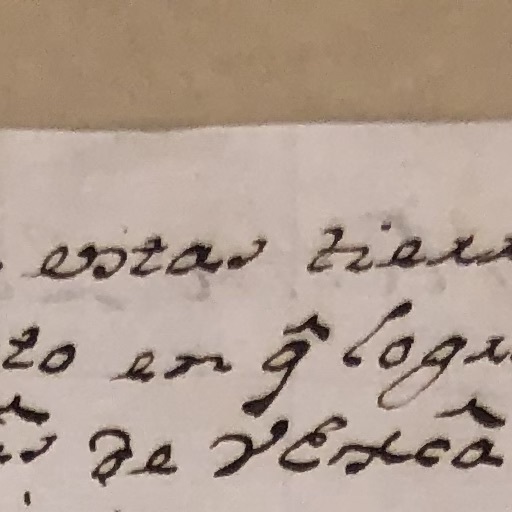 estas tierr
to en q̃ logr
s de V Excã